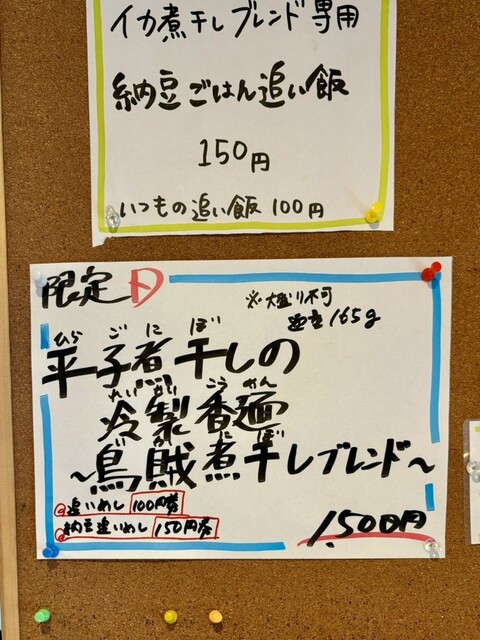 イカ煮干しブレンド専用
納豆ごはん追い飯
150円
いつもの追い飯100円
限定D
※大盛り不可
165g
ひら ご に ぼ
平子煮干しの
れいせい こうめん
冷製香麺
に ぼ
～烏賊煮干しブレンド～
追いめし 100円券
納豆追いめし 150円券
1,500円